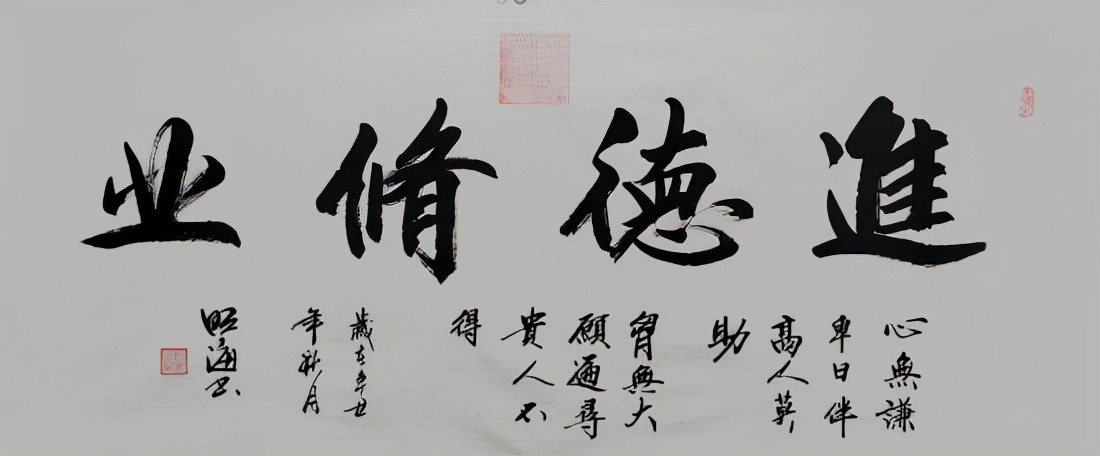 進德脩业
心無謙
卑日伴
高人莫
助
胷無大
願遍尋
貴人不
得
歲在辛丑
年秋月
昭海书